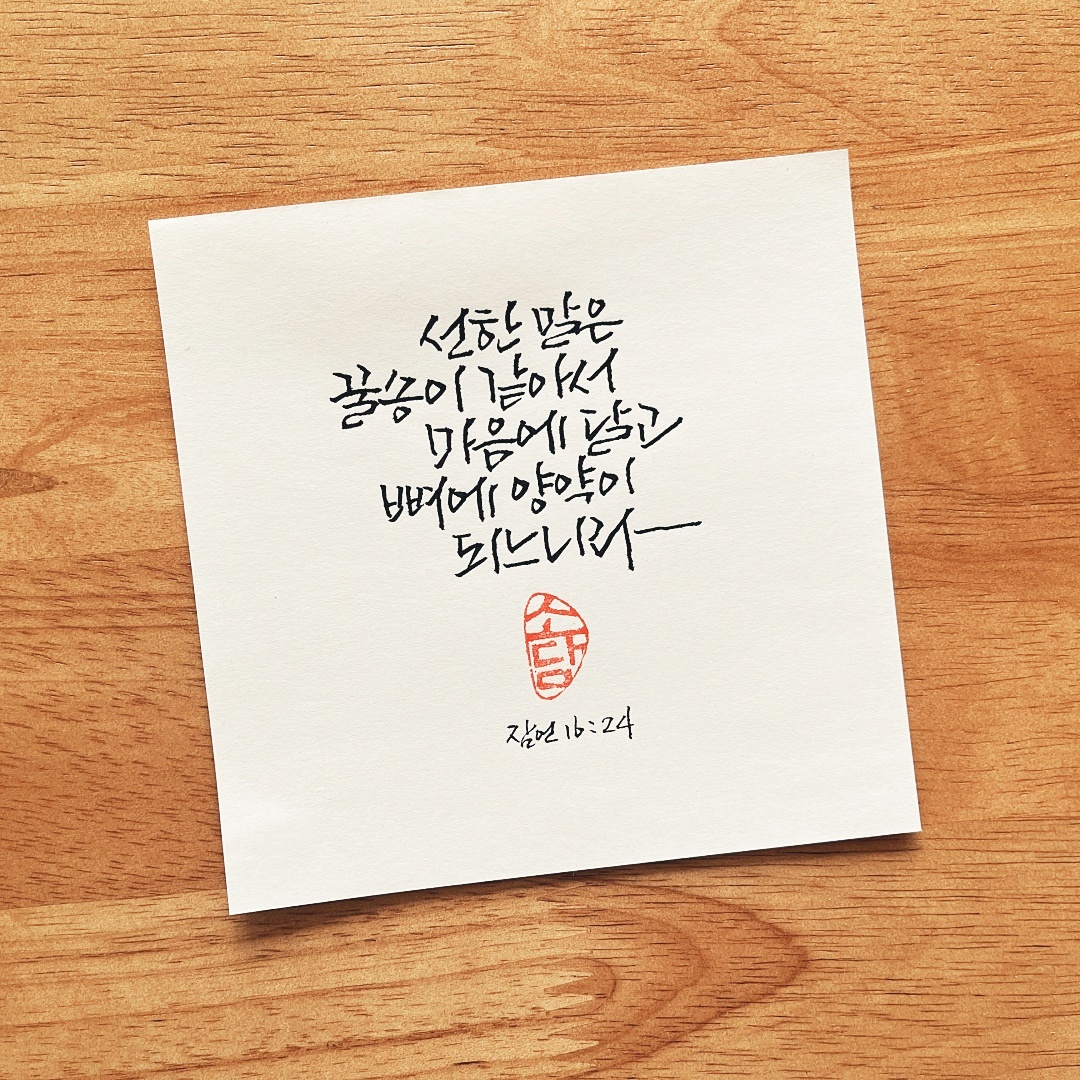 선한 말은
꿀송이 같아서
마음에 달고
뼈에 양약이
되느니라
소담
잠언 16:24